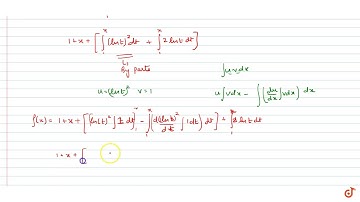 1 + x + [ ∫₁ˣ (ln t)² dt + ∫₁ˣ 2 ln t dt ]
By parts
∫ u v dx
u = (ln t)² v = 1
u ∫ v dx - ∫ ( du/dx ∫ v dx ) dx
f(x) = 1 + x + [ (ln t)² ∫ 1 dt ]₁ˣ - ∫₁ˣ ( d(ln t)²/dt ∫ 1 dt ) dt ] + ∫₁ˣ 2 ln t dt
1 + x + [